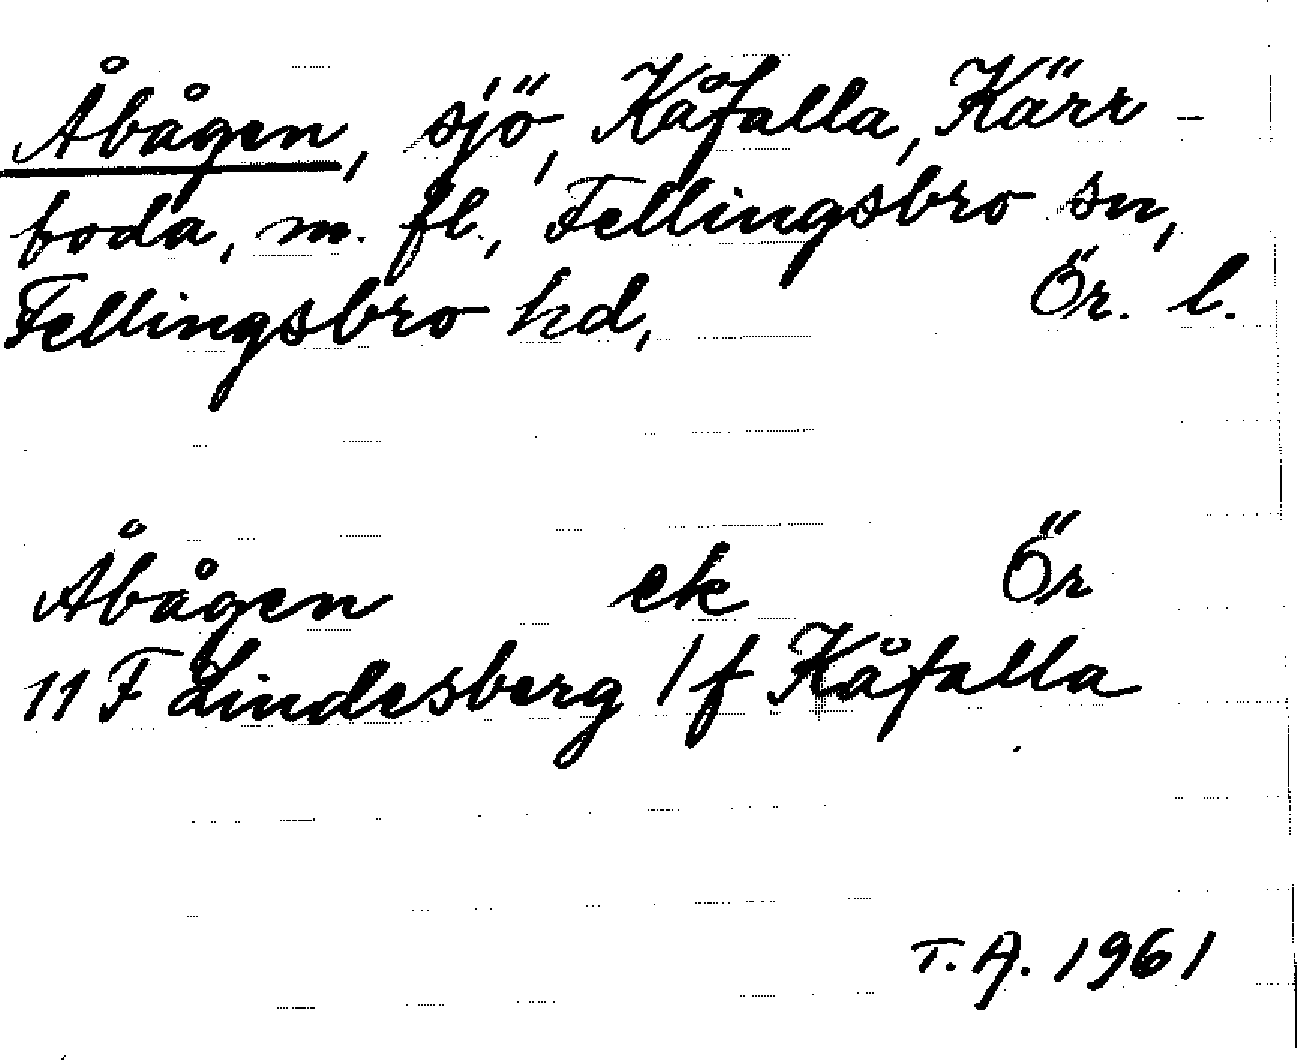 Åbågen, sjö, Kåfalla, Kärr-
boda, m. fl., Fellingsbro sn,
Fellingsbro hd, Ör. l.
Åbågen ek Ör
11 F Lindesberg 1 f Kåfalla
T. A. 1961